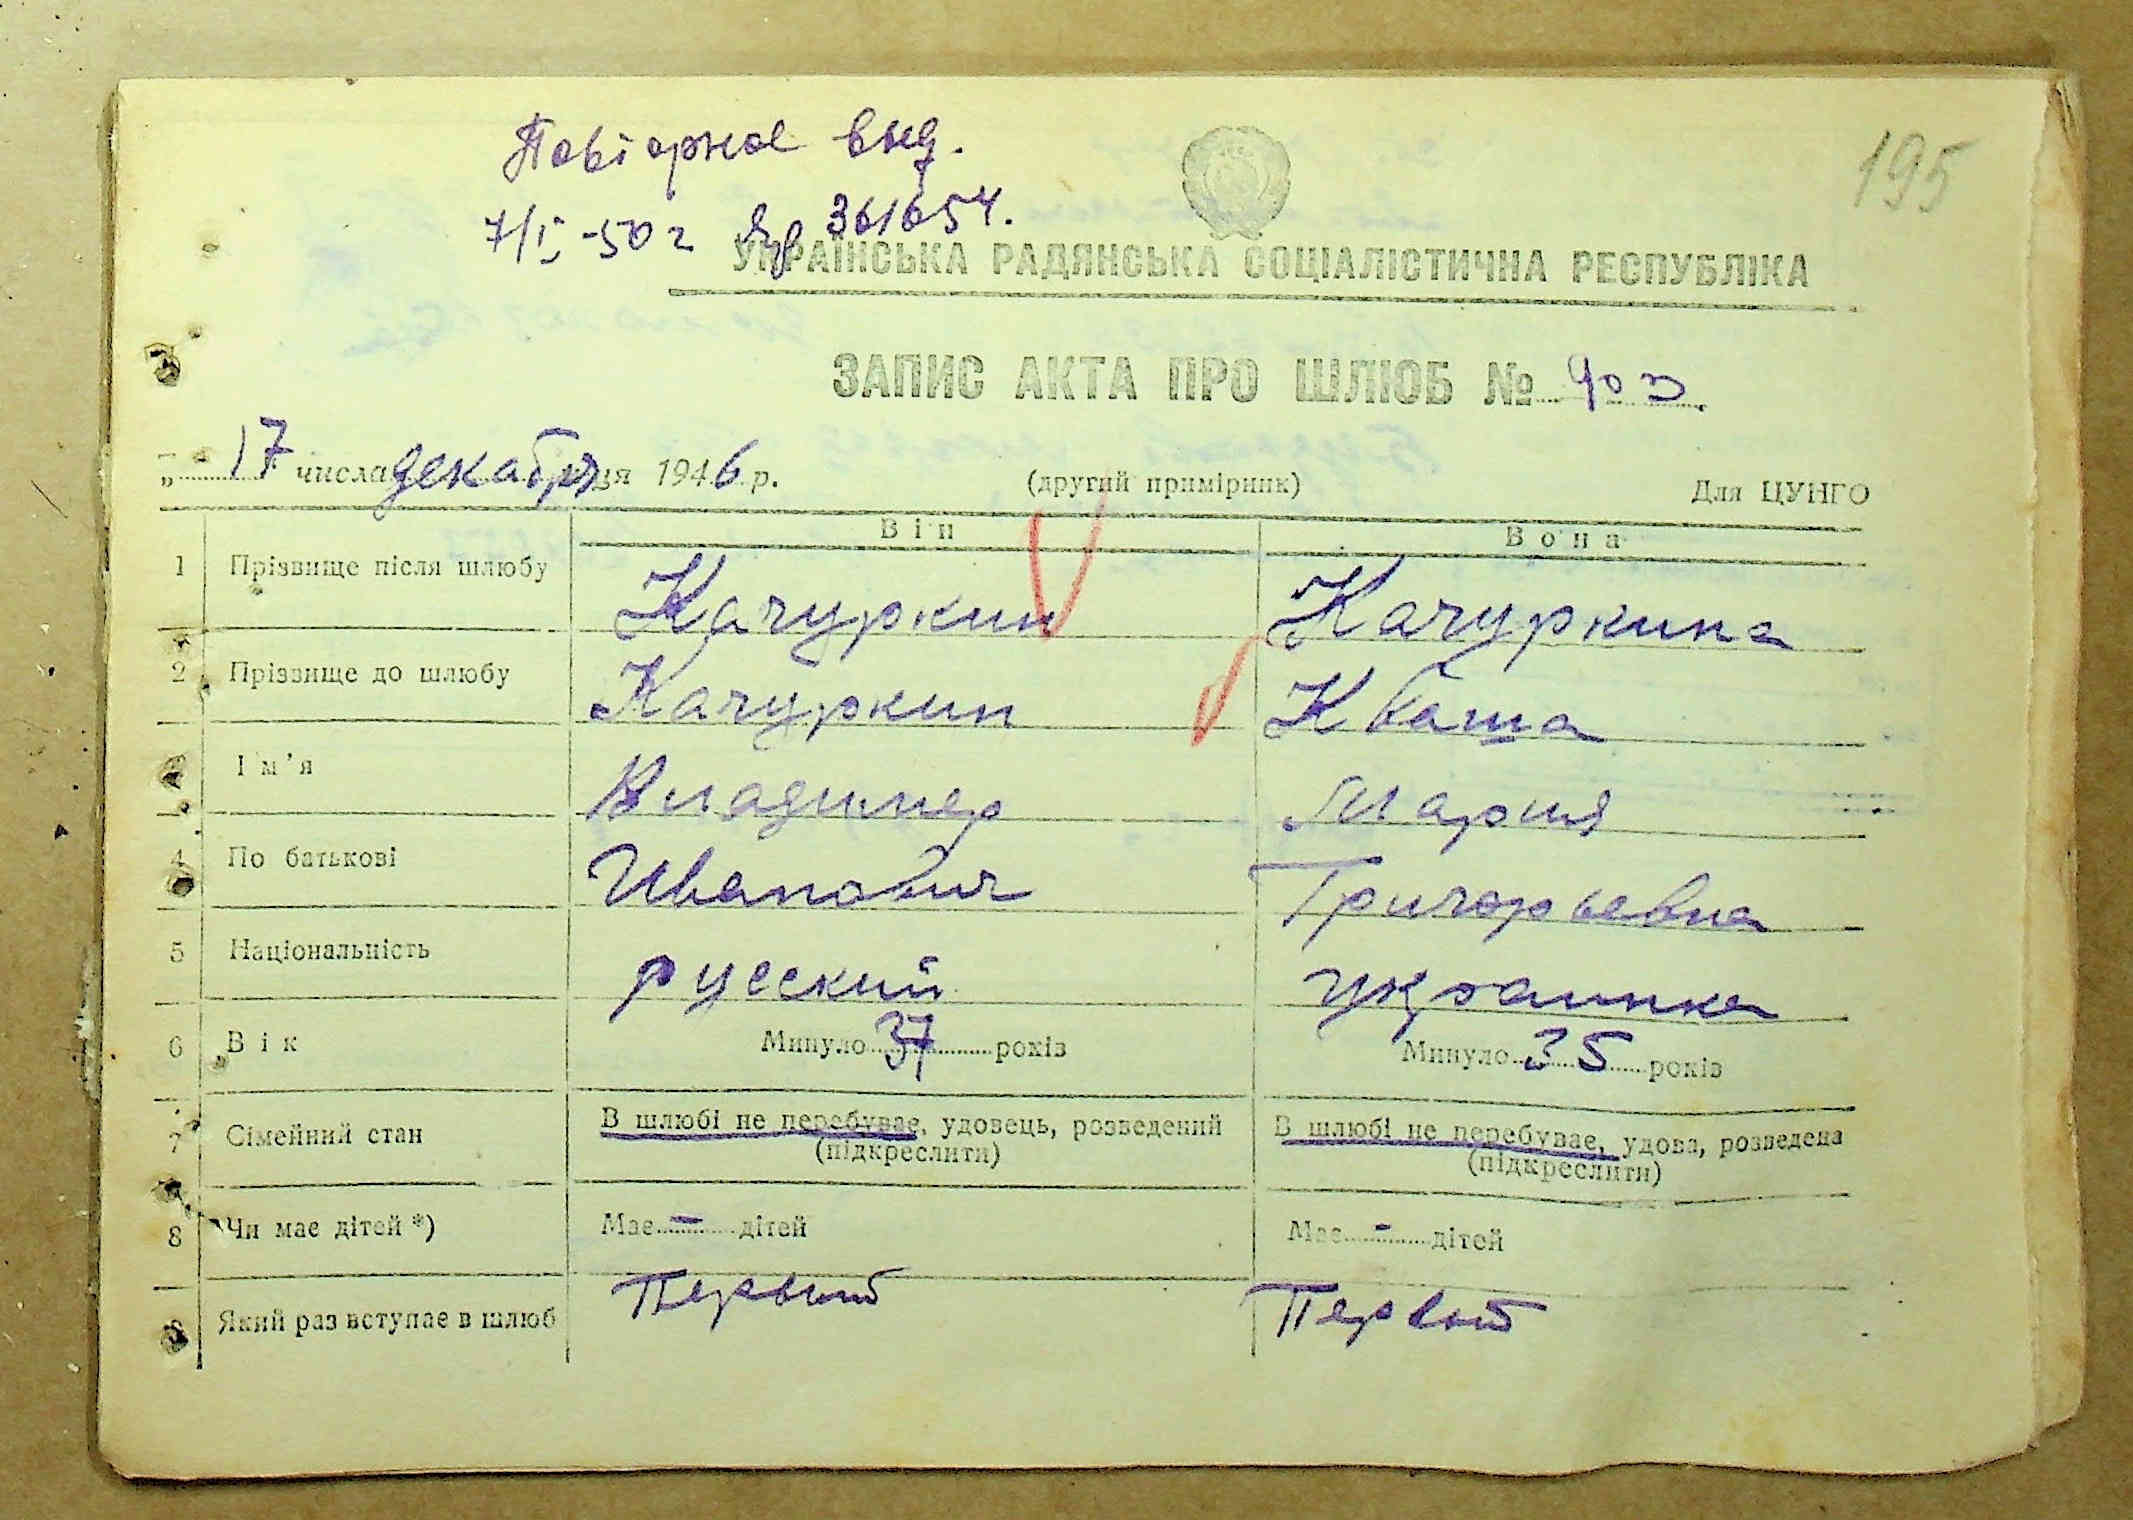 Повторное выд.
7/I-50 г Яр 361654.
195
УКРАЇНСЬКА РАДЯНСЬКА СОЦІАЛІСТИЧНА РЕСПУБЛІКА
ЗАПИС АКТА ПРО ШЛЮБ №
„ 17 числа декабря місяця 1946 р. (другий примірник) Для ЦУНГО
Він Вона
1 Прізвище після шлюбу Качуркин Качуркина
2 Прізвище до шлюбу Качуркин Кваша
Ім'я Владимер Мария
4 По батькові Иванович Григорьевна
5 Національність русский украинка
6 Вік Минуло 37 років Минуло 35 років
7 Сімейний стан В шлюбі не перебуває, удовець, розведений В шлюбі не перебуває, удова, розведена
(підкреслити) (підкреслити)
8 Чи має дітей *) Має - дітей Має - дітей
9 Який раз вступає в шлюб Первый Первый